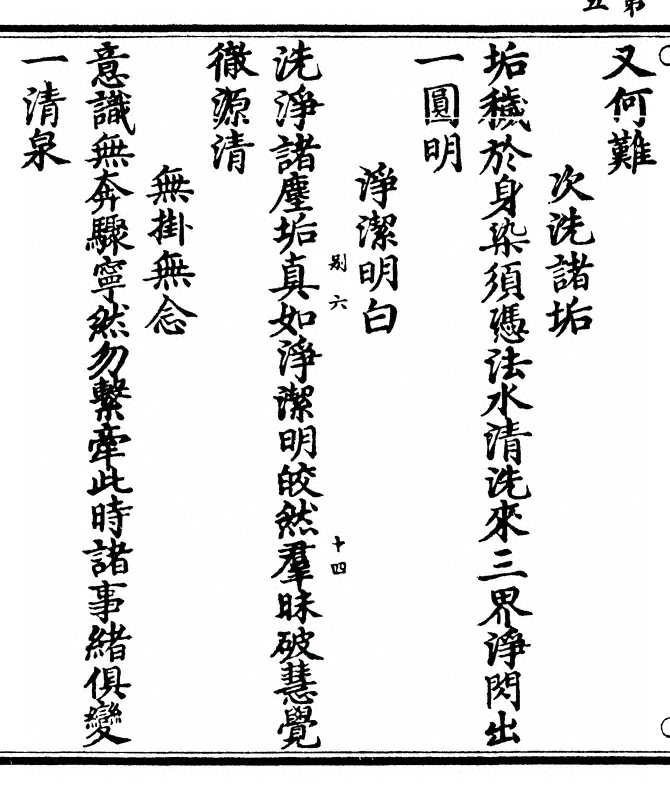 又何難
次洗諸垢
垢穢於身染須憑法水清洗來三界淨閃出
一圓明
淨潔明白
别六
十四
洗淨諸塵垢真如淨潔明皎然羣昧破慧覺
徹源清
無掛無念
意識無奔驟寧然勿繫牽此時諸事緒俱變
一清泉